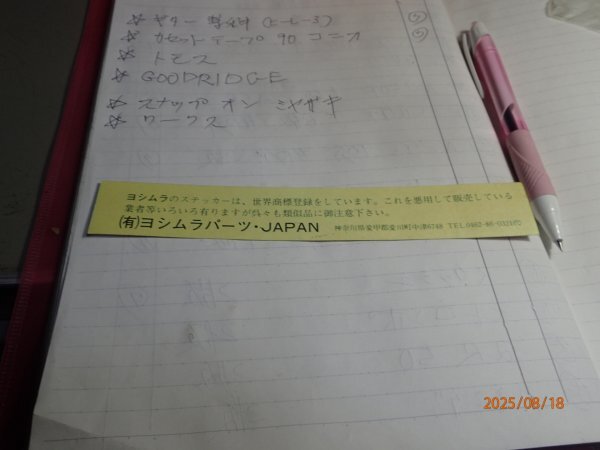 ☆ ギター 教科 (ヒ-ヒ-3) ⑤
☆ カセット テープ 90 コニカ ⑤
☆ トモス
☆ GOODRIDGE
☆ スナップ オン ミヤザキ
☆ ワークス
ヨシムラのステッカーは、世界商標登録をしています。これを悪用して販売している
業者等いろいろ有りますが呉々も類似品に御注意下さい。
(有)ヨシムラパーツ・JAPAN 神奈川県愛甲郡愛川町中津6748 TEL.0462-86-0321㈹
2025/08/18